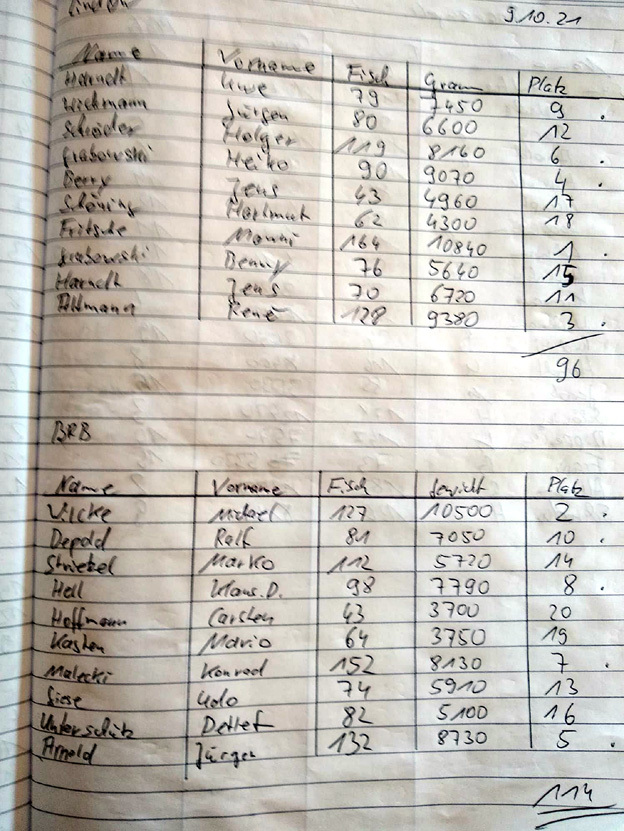 Lindow 9.10.21
Name Vorname Fisch Gramm Platz
Harndt Uwe 79 7450 9 .
Wichmann Jürgen 80 6600 12
Schröder Holger 119 8160 6 .
Grabowski Heiko 90 9070 4 .
Berry Jens 43 4960 17
Schöning Hartmut 62 4300 18
Fritsche Manni 164 10840 1 .
Grabowski Benny 76 5640 15
Harndt Jens 70 6720 11
Altmann René 128 9380 3 .
96
BRB
Name Vorname Fisch Gewicht Platz
Wilke Michael 127 10500 2 .
Depold Ralf 81 7050 10 .
Striebel Marko 112 5720 14
Heil Klaus.D. 98 7790 8 .
Hoffmann Carsten 43 3700 20
Kasten Mario 64 3750 19
Malecki Konrad 152 8130 7 .
Giese Udo 74 5910 13
Unterschütz Detlef 82 5100 16
Arnold Jürgen 132 8730 5 .
114